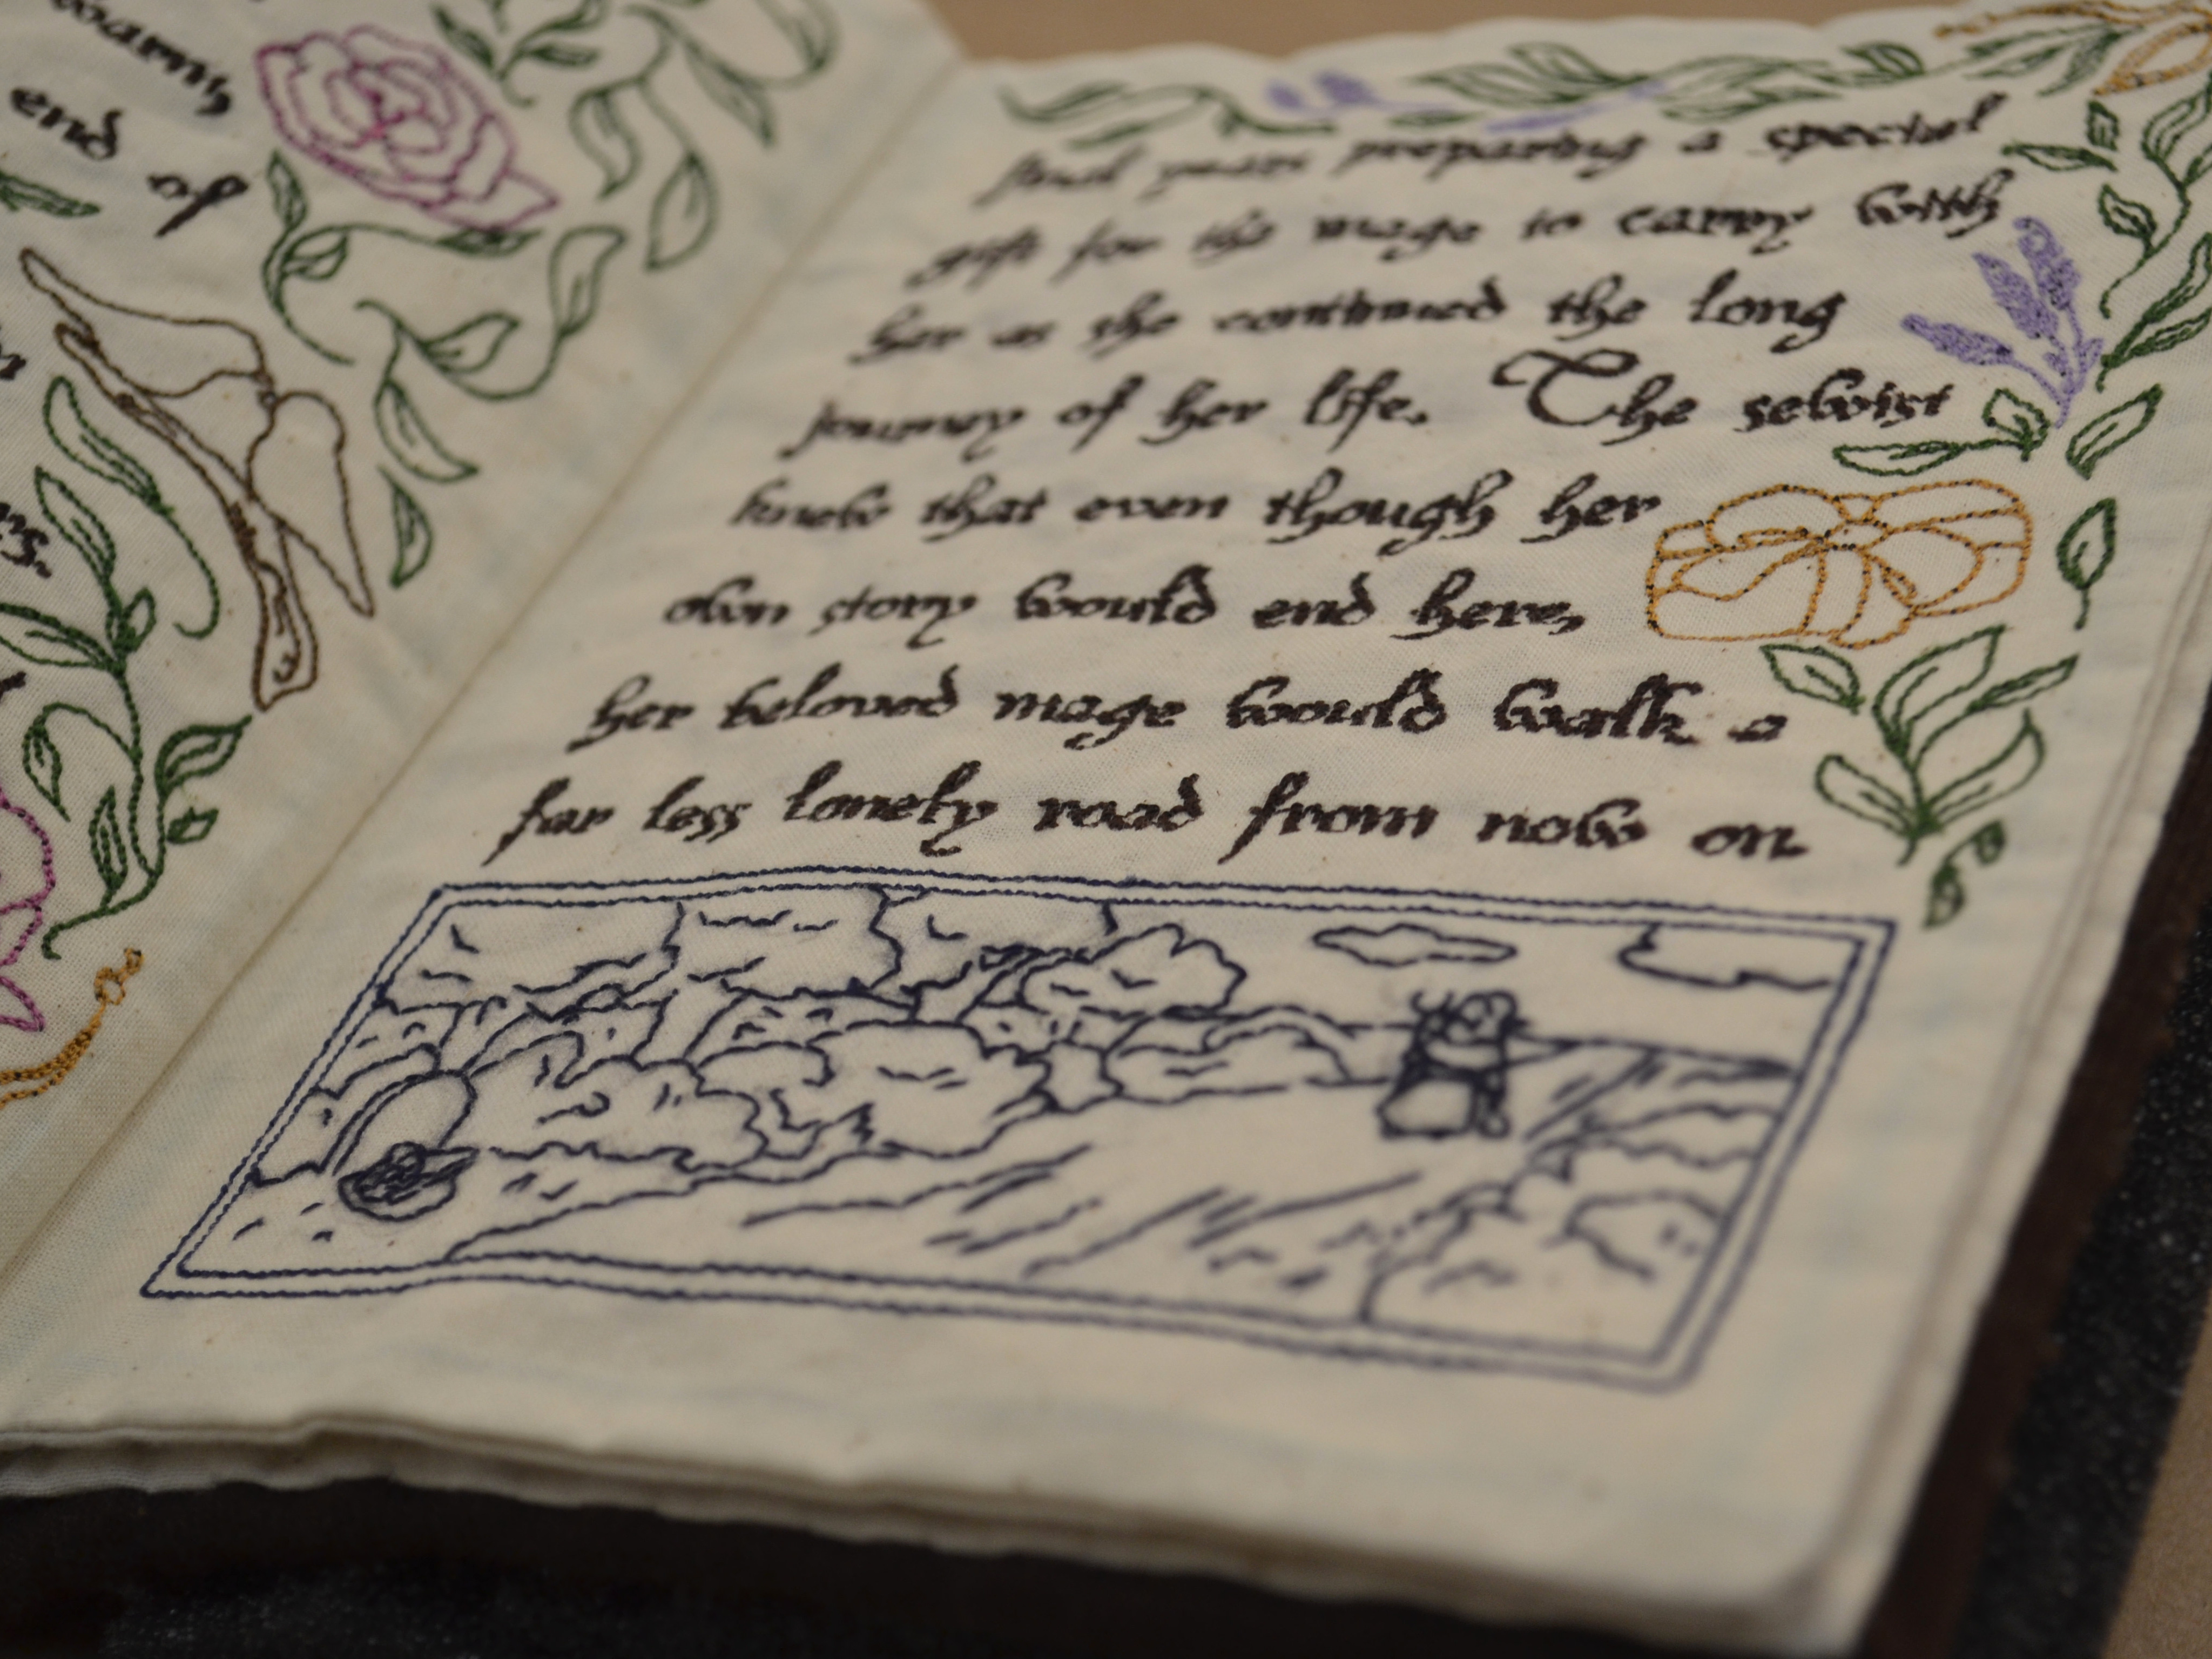 end
of
final years preparing a special
gift for the mage to carry with
her as she continued the long
journey of her life. The sewist
knew that even though her
own story would end here,
her beloved mage would walk a
far less lonely road from now on